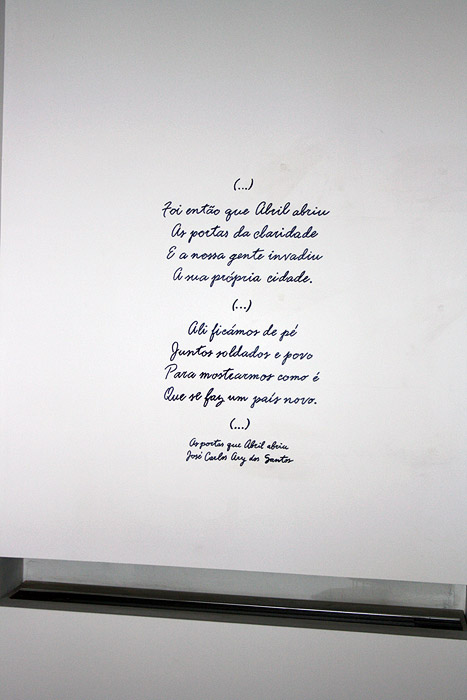 (...)
Foi então que Abril abriu
As portas da claridade
E a nossa gente invadiu
A sua própria cidade.
(...)
Ali ficámos de pé
Juntos soldados e povo
Para mostrarmos como é
Que se faz um país novo.
(...)
As portas que Abril abriu
José Carlos Ary dos Santos